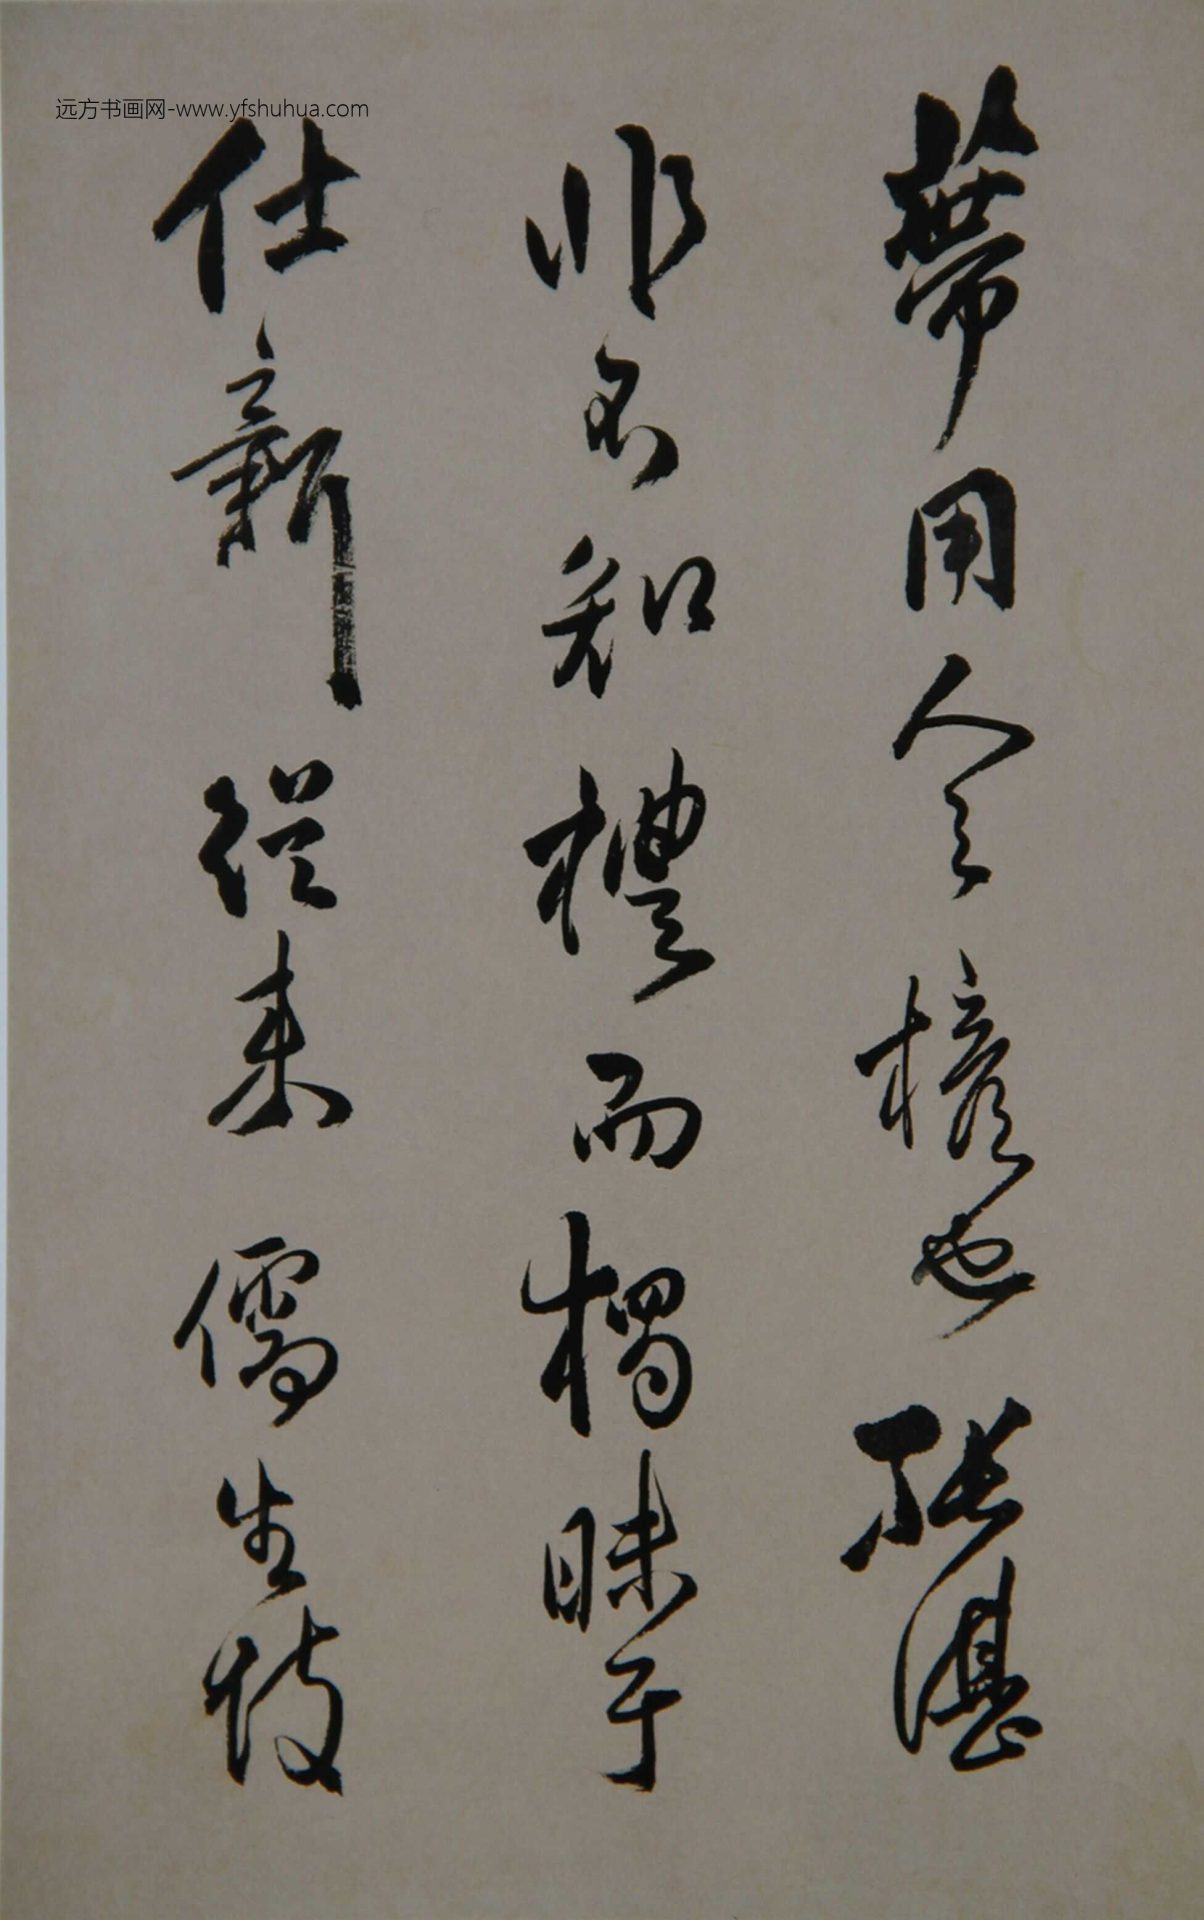 远方书画网-www.yfshuhua.com
用人之權也張湛
非不知禮而獨昧于
仕新從來儒生